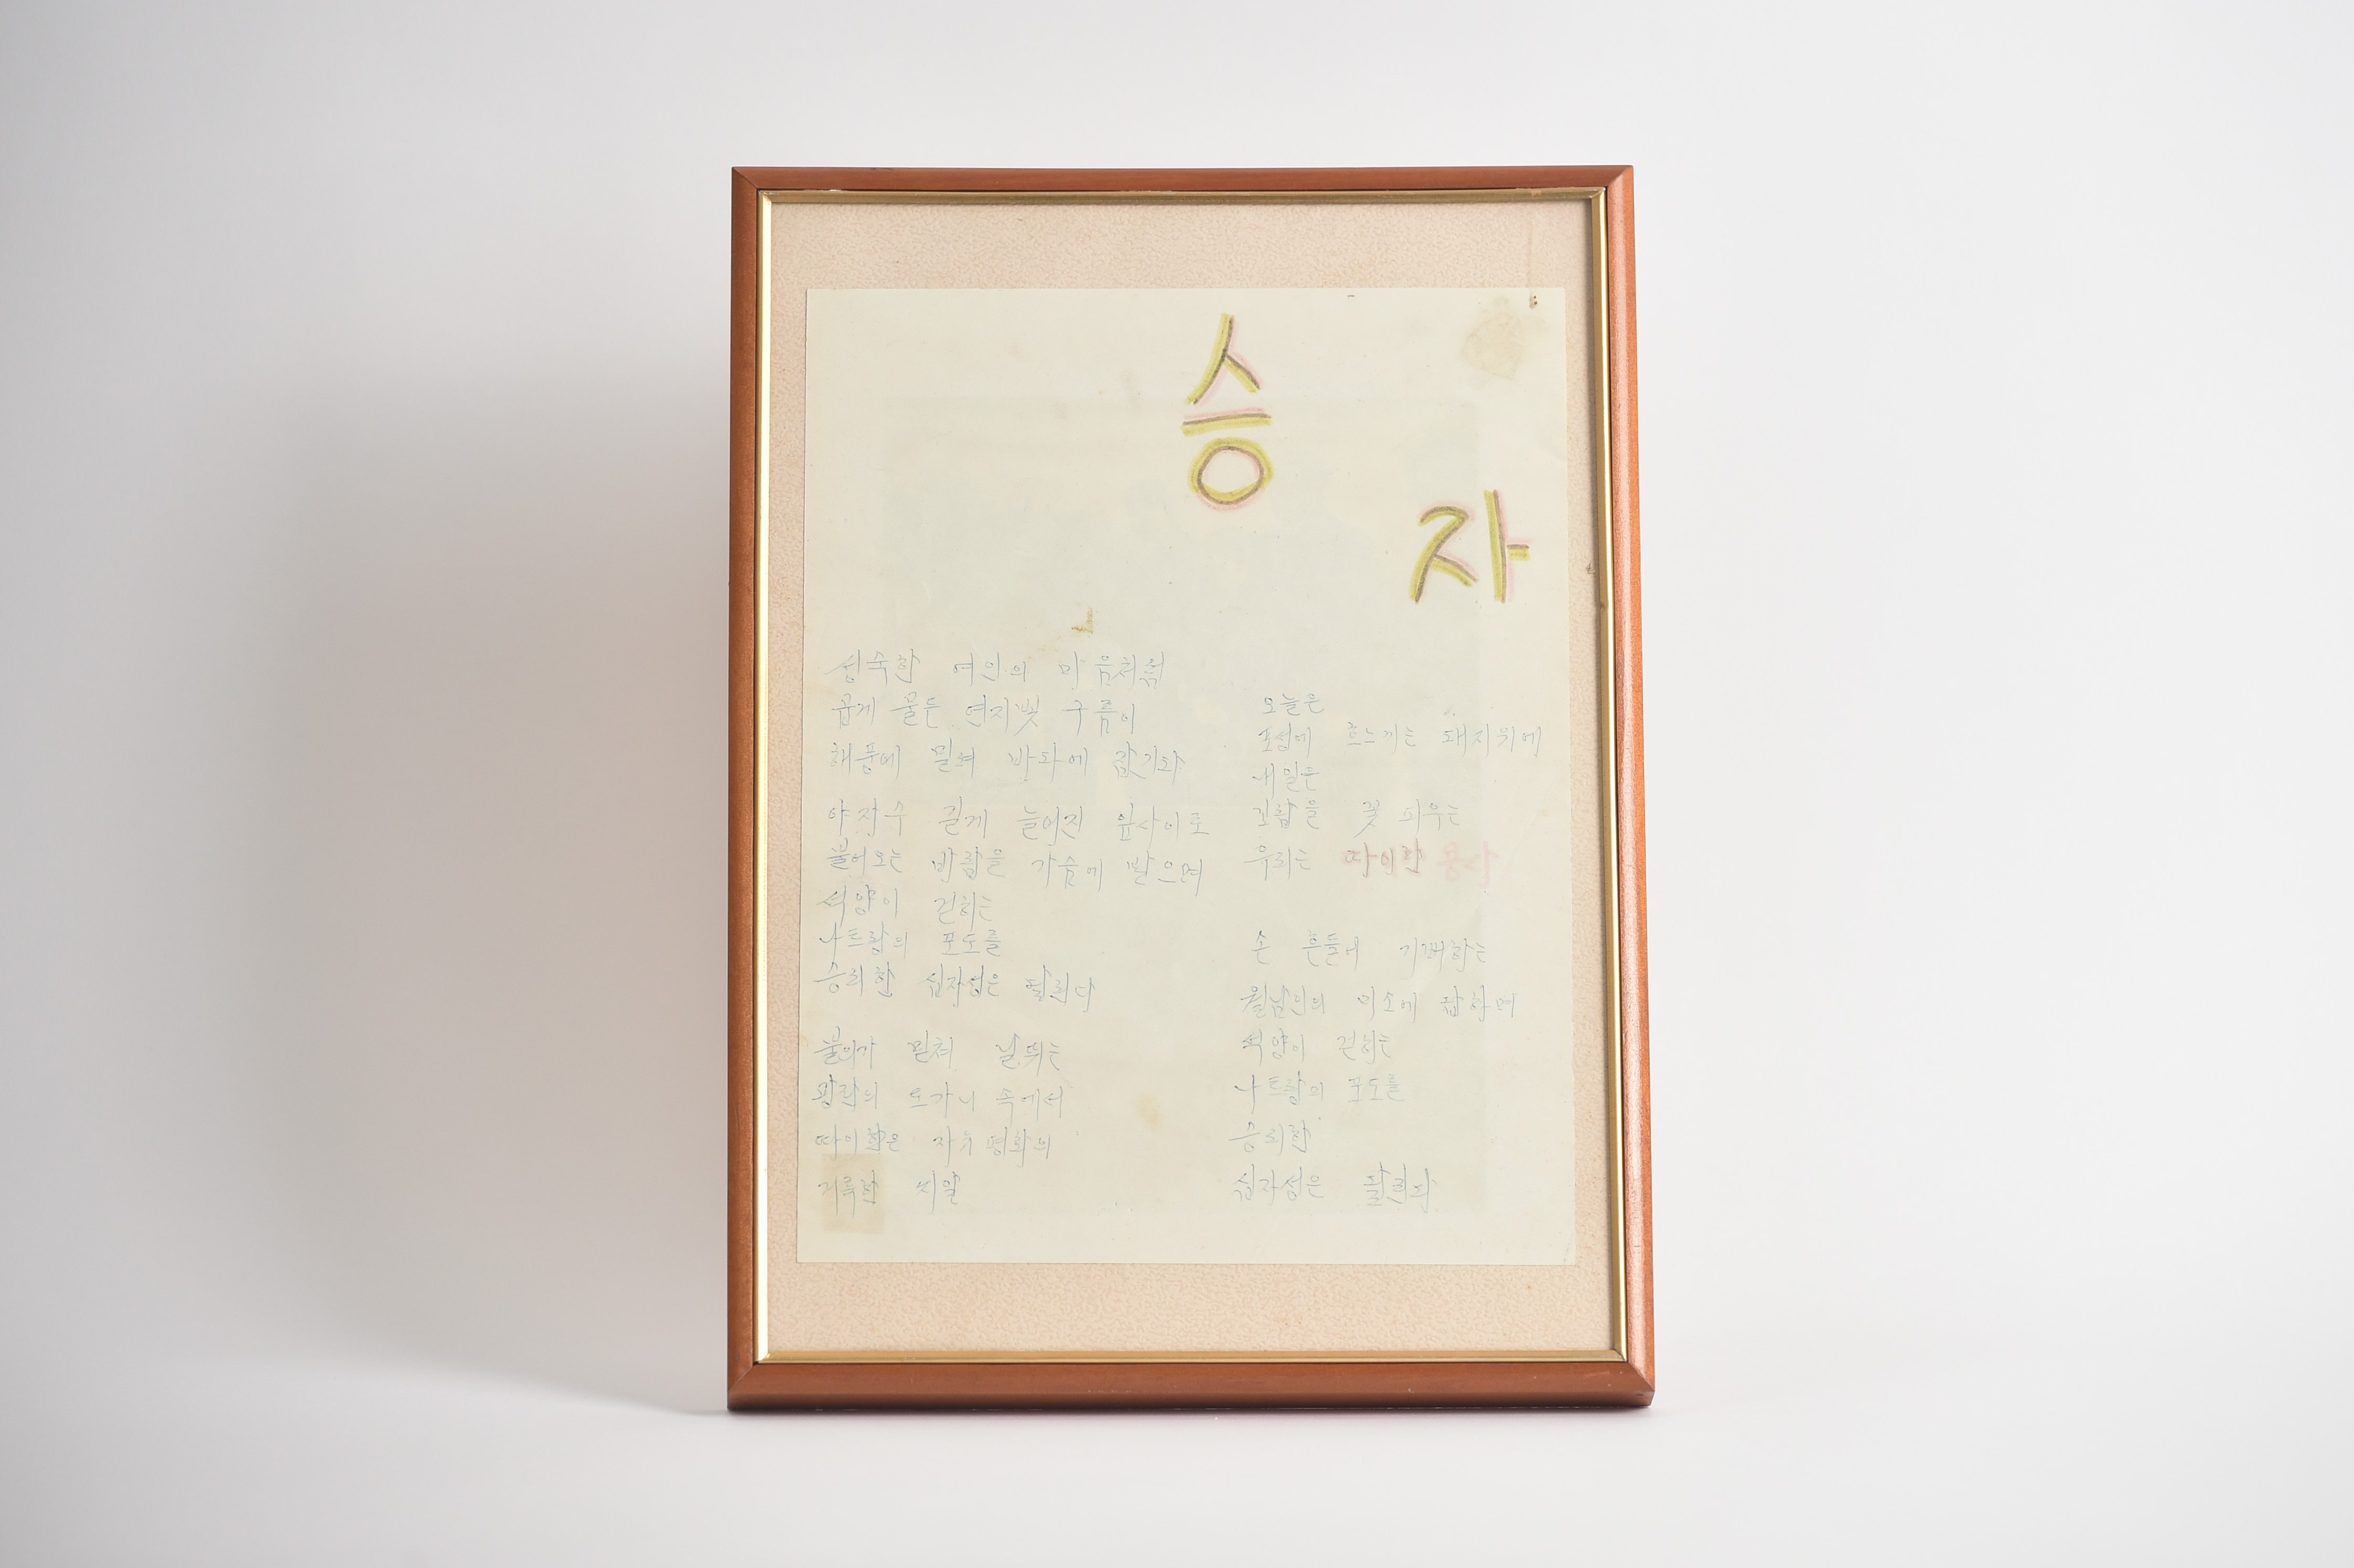 승
자
성숙한 여인의 마음처럼
곱게 물든 연지빛 구름이
해풍에 밀려 바다에
야자수 길게 늘어진 잎사이로
불어오는 바람을 가슴에 받으며
석양이 걷히는
나트랑의 포도를
승리한 십자성은 달린다
불이가 미쳐 날뛰는
왕란의 도가니 속에서
따이한은 자유 평화의
거룩한 씨알
오늘은
포성에 흐느끼는 돼지위에
내일은
보람을 꽃 피우는
우리는 따이한 용사
손 흔들어 기뻐하는
월남인의 미소에 답하며
석양이 걷히는
나트랑의 포도를
승리한
십자성은 달린다